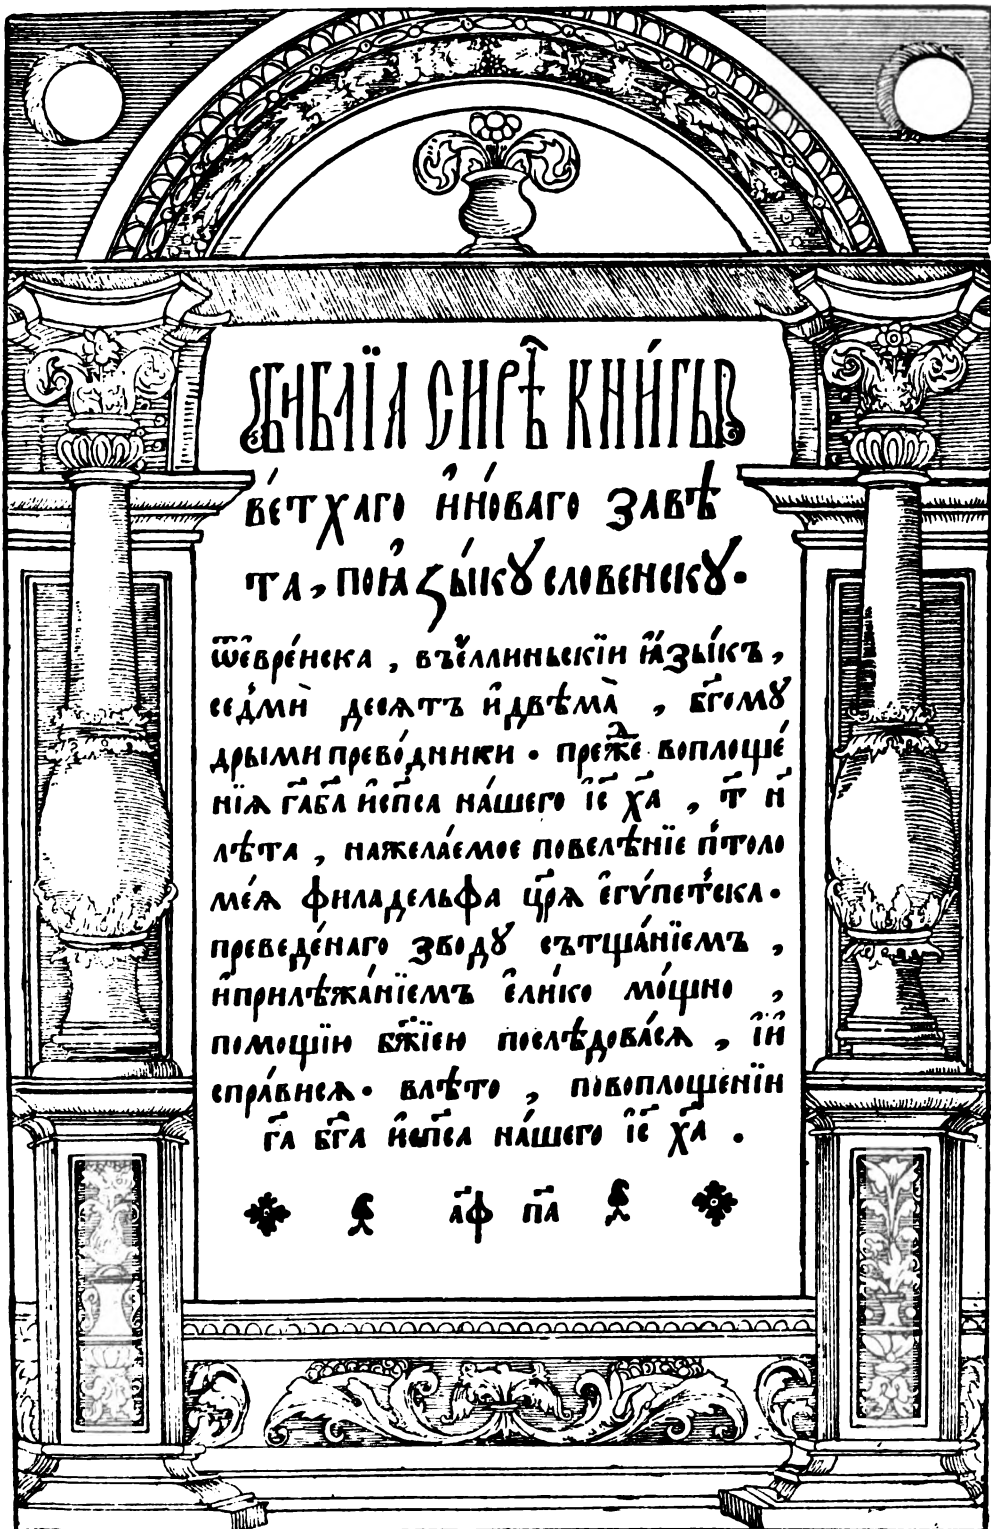 БИБЛЇѦ СИРѢ҃Ч КНИ́ГЫ
ве́тхаго и҆но́ваго завѣ
та, поꙗ҆зы́кꙋ словенскꙋ.
ѿе҆вре́нска, въе҆ллиньскїи ꙗ҆зы́къ,
се́дми̇̀ десѧтъ и҆двѣма̀, бг҃омꙋ
дрыми прево́дники. преⷤ҇е воплоще́
нїѧ га҃ бг҃а и҆сп҃са на́шего і҆с҃ х҃а, т҃ и҃
лѣта, нажела́емое повелѣнїе пто́ло
ме́ѧ филадельфа цр҃ѧ є҆гѵ́петска.
преведе́наго зводꙋ сътща́нїемъ,
и҆прилѣжа́нїемъ є҆ли́ко мо́щно,
помощїю бж҃їею послѣдова́сѧ, і҆и҆
спра́висѧ. влѣто, повоплощенїи
га҃ бг҃а и҆сп҃са на́шего і҆с҃ х҃а.
а҃ф п҃а